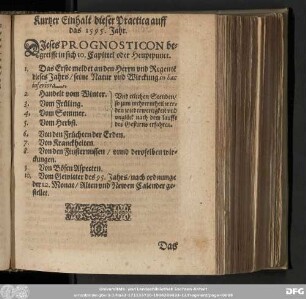 Kurtzer Einhalt dieser Practica auff
das 1595. Jahr.
DJeses PROGNOSTICON be-
greiffe in sich 10. Capittel oder Heuptpunct.
1. Das Erste meldet an den Herrn und Regent
dieses Jahrs / seine Natur und Wirckung in hac
inferiora.
2. Handelt vom Winter.
3. Vom Früling.
4. Vom Sommer.
5. Vom Herbst.
Von etlichen Stenden /
so zum mehrertheil wer-
den und
unglück nach dem lauffe
des Gestirns erfahren.
6. Von den Früchten der Erden.
7. Von Kranckheiten.
8. Von den Finsternussen / unnd derselben wir-
ckungen.
9. Von Bösen Aspecten.
10. Vom Gewitter des 95. Jahrs / nach ordnunge
der 12. Monat / Alten und Newen Calender ge-
stellet.
Das